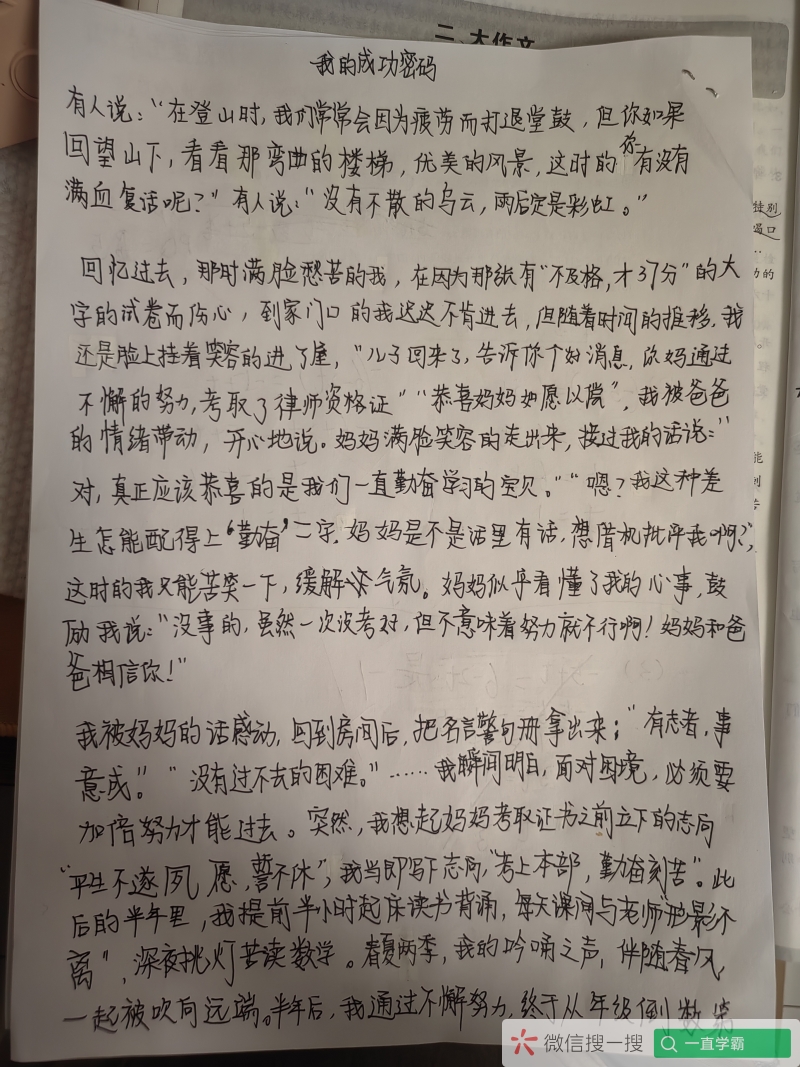 二、大作文
我的成功密码
有人说：“在登山时，我们常常会因为疲劳而打退堂鼓，但你如果
回望山下，看看那弯曲的楼梯，优美的风景，这时的你有没有
满血复话呢？”有人说：“没有不散的乌云，雨后定是彩虹。”
回忆过去，那时满脸愁苦的我，在因为那张有“不及格，才37分”的大
字的试卷而伤心，到家门口的我迟迟不肯进去，但随着时间的推移，我
还是脸上挂着笑容的进了屋，“儿子回来了，告诉你个好消息，你妈通过
不懈的努力，考取了律师资格证”“恭喜妈妈如愿以偿”，我被爸爸
的情绪带动，开心地说。妈妈满脸笑容的走出来，接过我的话说：“
对，真正应该恭喜的是我们一直勤奋学习的宝贝。”“嗯？我这种差
生怎能配得上‘勤奋’二字，妈妈是不是话里有话，想借机批评我啊？”，
这时的我只能苦笑一下，缓解气氛。妈妈似乎看懂了我的心事，鼓
励我说：“没事的，虽然一次没考好，但不意味着努力就不行啊！妈妈和爸
爸相信你！”
我被妈妈的话感动，回到房间后，把名言警句册拿出来；“有志者，事
意成！”“没有过不去的困难。”……我瞬间明白，面对困境，必须要
加倍努力才能过去。突然，我想起妈妈考取证书之前立下的志向
“平生不遂夙愿，誓不休”，我当即写下志向，“考上本部，勤奋刻苦”。此
后的半年里，我提前半小时起床读书背诵，每天课间与老师“形影不
离”，深夜挑灯苦读数学。春夏两季，我的吟诵之声，伴随春风，
一起被吹向远端。半年后，我通过不懈努力，终于从年级倒数第
微信搜一搜
一直学霸